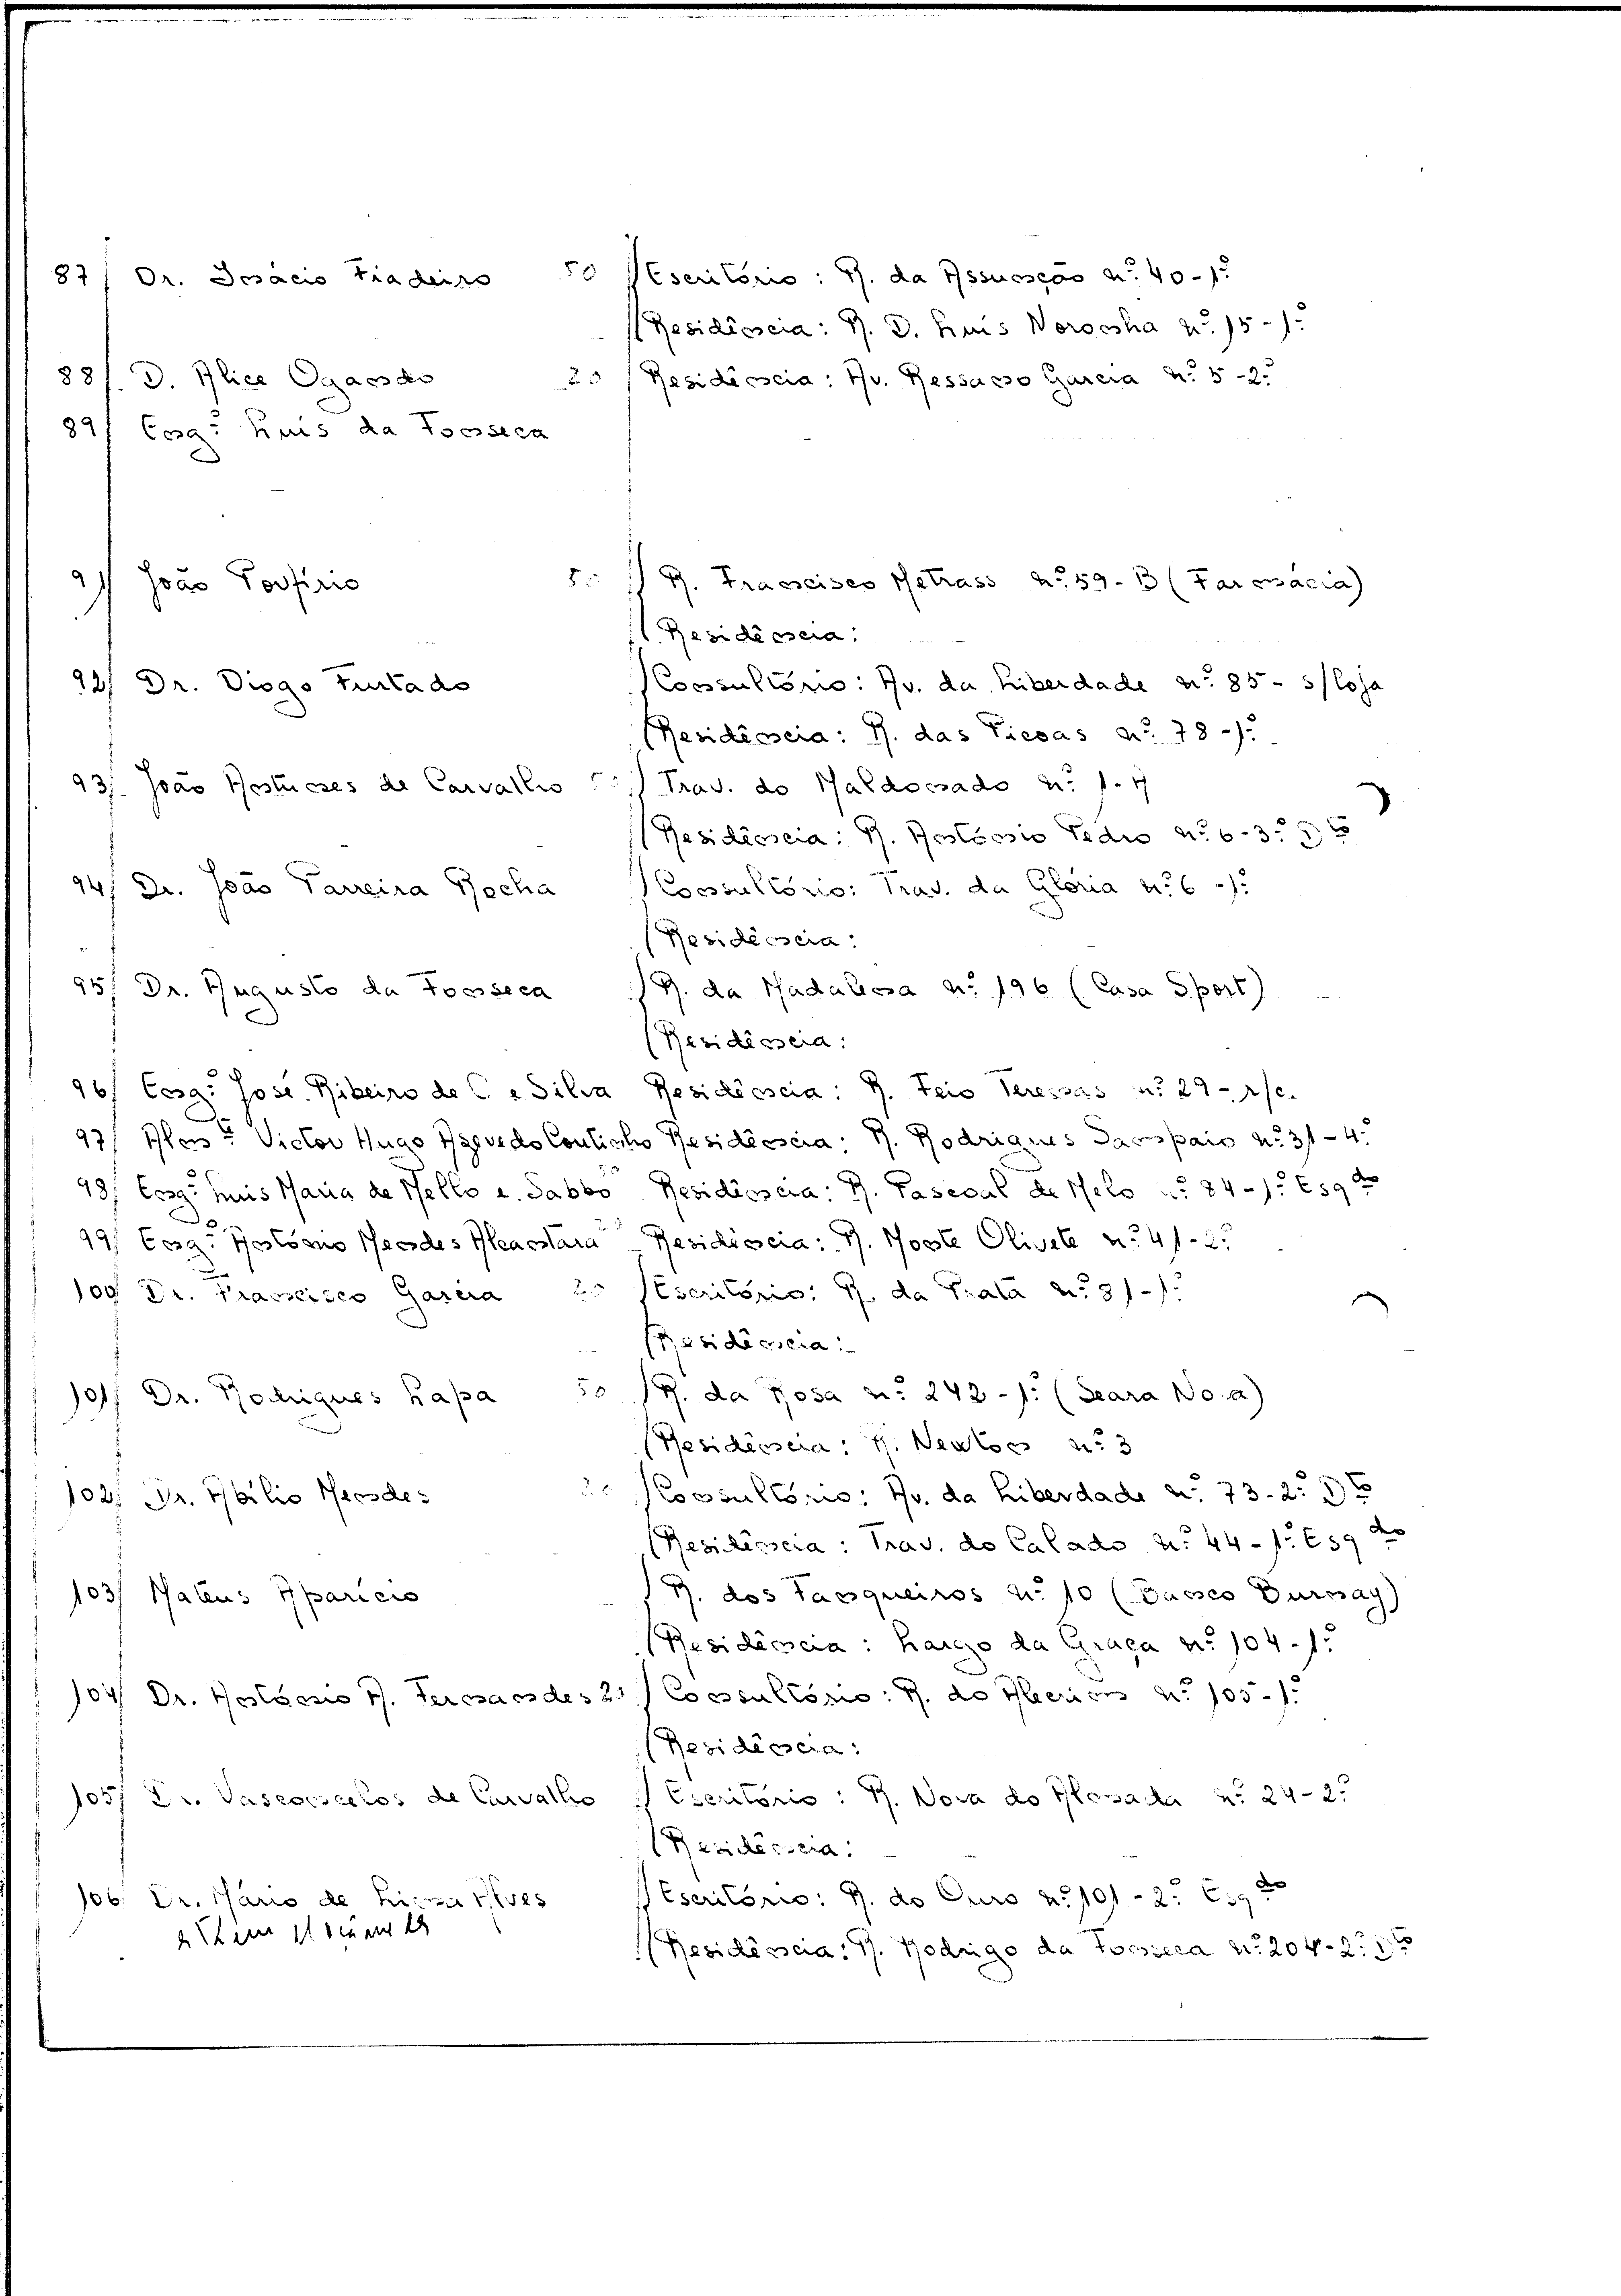 87/ Dr. Inácio Fiadeiro 50 Escritório: R. da Assunção n.º 40-1.º
Residência: R. D. Luis Noronha n.º 15-1.º
88/. D. Alice Ogando 20 Residência: Av. Ressano Garcia n.º 5-2.º
89/ Eng.º Luis da Fonseca
91/ João Porfirio 50 R. Francisco Metrass n.º 59-B (Farmácia)
Residência:
92/ Dr. Diogo Furtado Consultório: Av. da Liberdade n.º 85 - s/loja
Residência: R. das Picoas n.º 78-1.º
93/. João Antunes de Carvalho Trav. do Maldonado n.º 1-A
Residência: R. António Pedro n.º 6-3.º Dto
94/ Dr. João Parreira Rocha Consultório: Trav. da Glória n.º 6-1.º
Residência:
95/ Dr. Augusto da Fonseca R. da Madalena n.º 196 (Casa Sport)
Residência:
96/ Eng.º José Ribeiro de C. e Silva Residência: R. Feio Terenas n.º 29-r/c.
97/ Alm.te Victor Hugo Azevedo Coutinho Residência: R. Rodrigues Sampaio n.º 31-4.º
98/ Eng.º Luis Maria de Mello e Sabbo Residência: R. Pascoal de Melo n.º 84-1.º Esqdo
99/ Eng.º António Mendes Alcantara Residência: R. Monte Olivete n.º 41-2.º
100/ Dr. Francisco Garcia 20 Escritório: R. da Prata n.º 81-1.º
Residência:
101/ Dr. Rodrigues Lapa 50 R. da Rosa n.º 242-1.º (Seara Nova)
Residência: R. Newton n.º 3
102/ Dr. Abilio Mendes 20 Consultório: Av. da Liberdade n.º 73-2.º Dto
Residência: Trav. do Calado n.º 44-1.º Esqdo
103/ Mateus Aparicio R. dos Fanqueiros n.º 10 (Banco Burnay)
Residência: Largo da Graça n.º 104-1.º
104/ Dr. António A. Fernandes 20 Consultório: R. do Alecrim n.º 105-1.º
Residência:
105/ Dr. Vasconcelos de Carvalho Escritório: R. Nova do Almada n.º 24-2.º
Residência:
106/ Dr. Mário de Lima Alves Escritório: R. do Ouro n.º 101-2.º Esqdo
Residência: R. Rodrigo da Fonseca n.º 204-2.º Dto